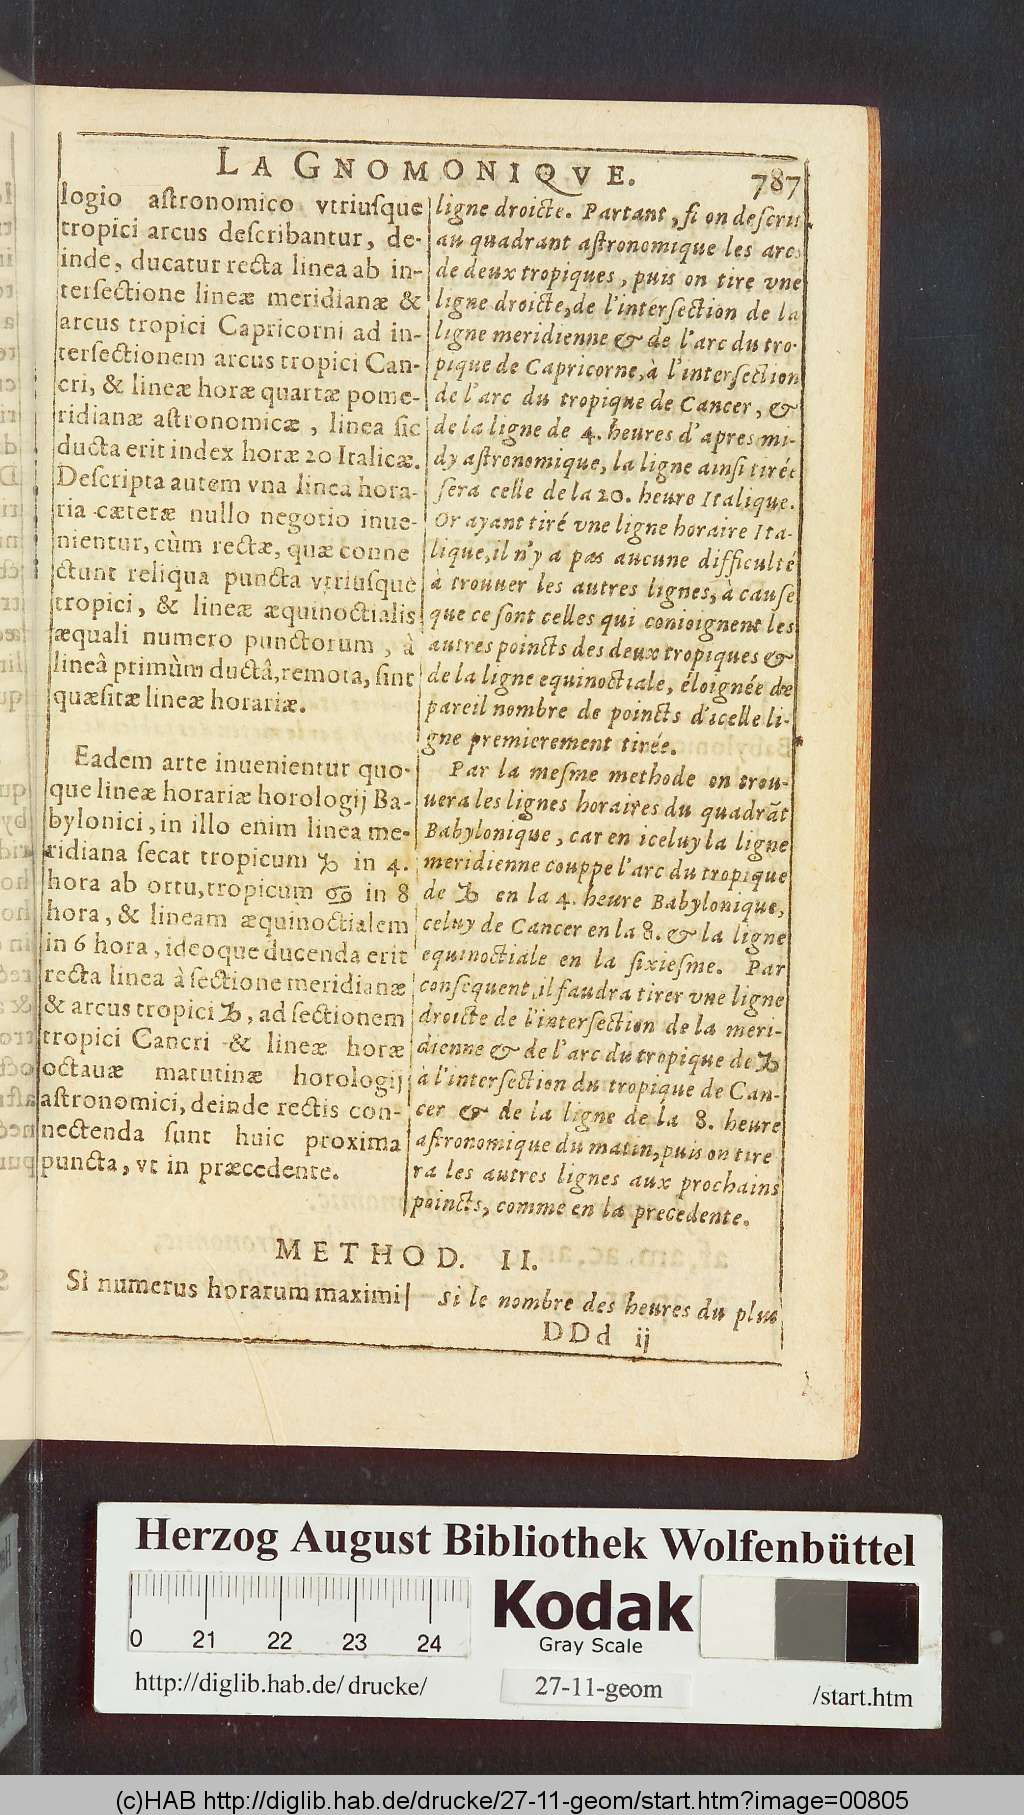 LA GNOMONIQVE. 787
logio astronomico vtriusque
tropici arcus describantur, de-
inde, ducatur recta linea ab in-
tersectione lineæ meridianæ &
arcus tropici Capricorni ad in-
tersectionem arcus tropici Can-
cri, & lineæ horæ quartæ pome-
ridianæ astronomicæ, linea sic
ducta erit index horæ 20 Italicæ.
Descripta autem vna linea hora-
ria cæteræ nullo negotio inue-
nientur, cùm rectæ, quæ conne
ctunt reliqua puncta vtriusque
tropici, & lineæ æquinoctialis
æquali numero punctorum, à
lineâ primùm ductâ, remota, sint
quæsitæ lineæ horariæ.
Eadem arte inuenientur quo-
que lineæ horariæ horologij Ba-
bylonici, in illo enim linea me-
ridiana secat tropicum ♑ in 4.
hora ab ortu, tropicum ♋ in 8
hora, & lineam æquinoctialem
in 6 hora, ideoque ducenda erit
recta linea à sectione meridianæ
& arcus tropici ♑, ad sectionem
tropici Cancri & lineæ horæ
octauæ matutinæ horologij
astronomici, deinde rectis con-
nectenda sunt huic proxima
puncta, vt in præcedente.
ligne droicte. Partant, si on descrit
au quadrant astronomique les arcs
de deux tropiques, puis on tire vne
ligne droicte, de l'intersection de la
ligne meridienne & de l'arc du tro-
pique de Capricorne, à l'intersection
de l'arc du tropique de Cancer, &
de la ligne de 4. heures d'apres mi-
dy astronomique, la ligne ainsi tirée
sera celle de la 20. heure Italique.
Or ayant tiré vne ligne horaire Ita-
lique, il n'y a pas aucune difficulté
à trouuer les autres lignes, à cause
que ce sont celles qui conioignent les
autres poincts des deux tropiques &
de la ligne equinoctiale, éloignée de
pareil nombre de poincts d'icelle li-
gne premierement tirée.
Par la mesme methode on trou-
uera les lignes horaires du quadrãt
Babylonique, car en iceluy la ligne
meridienne couppe l'arc du tropique
de ♑ en la 4. heure Babylonique,
celuy de Cancer en la 8. & la ligne
equinoctiale en la sixiesme. Par
consequent, il faudra tirer vne ligne
droicte de l'intersection de la meri-
dienne & de l'arc du tropique de ♑
à l'intersection du tropique de Can-
cer & de la ligne de la 8. heure
astronomique du matin, puis on tire
ra les autres lignes aux prochains
poincts, comme en la precedente.
METHOD. II.
Si numerus horarum maximi
Si le nombre des heures du plus
DDd ij
Herzog August Bibliothek Wolfenbüttel
0 21 22 23 24
Kodak
Gray Scale
http://diglib.hab.de/drucke/ 27-11-geom /start.htm
(c)HAB http://diglib.hab.de/drucke/27-11-geom/start.htm?image=00805